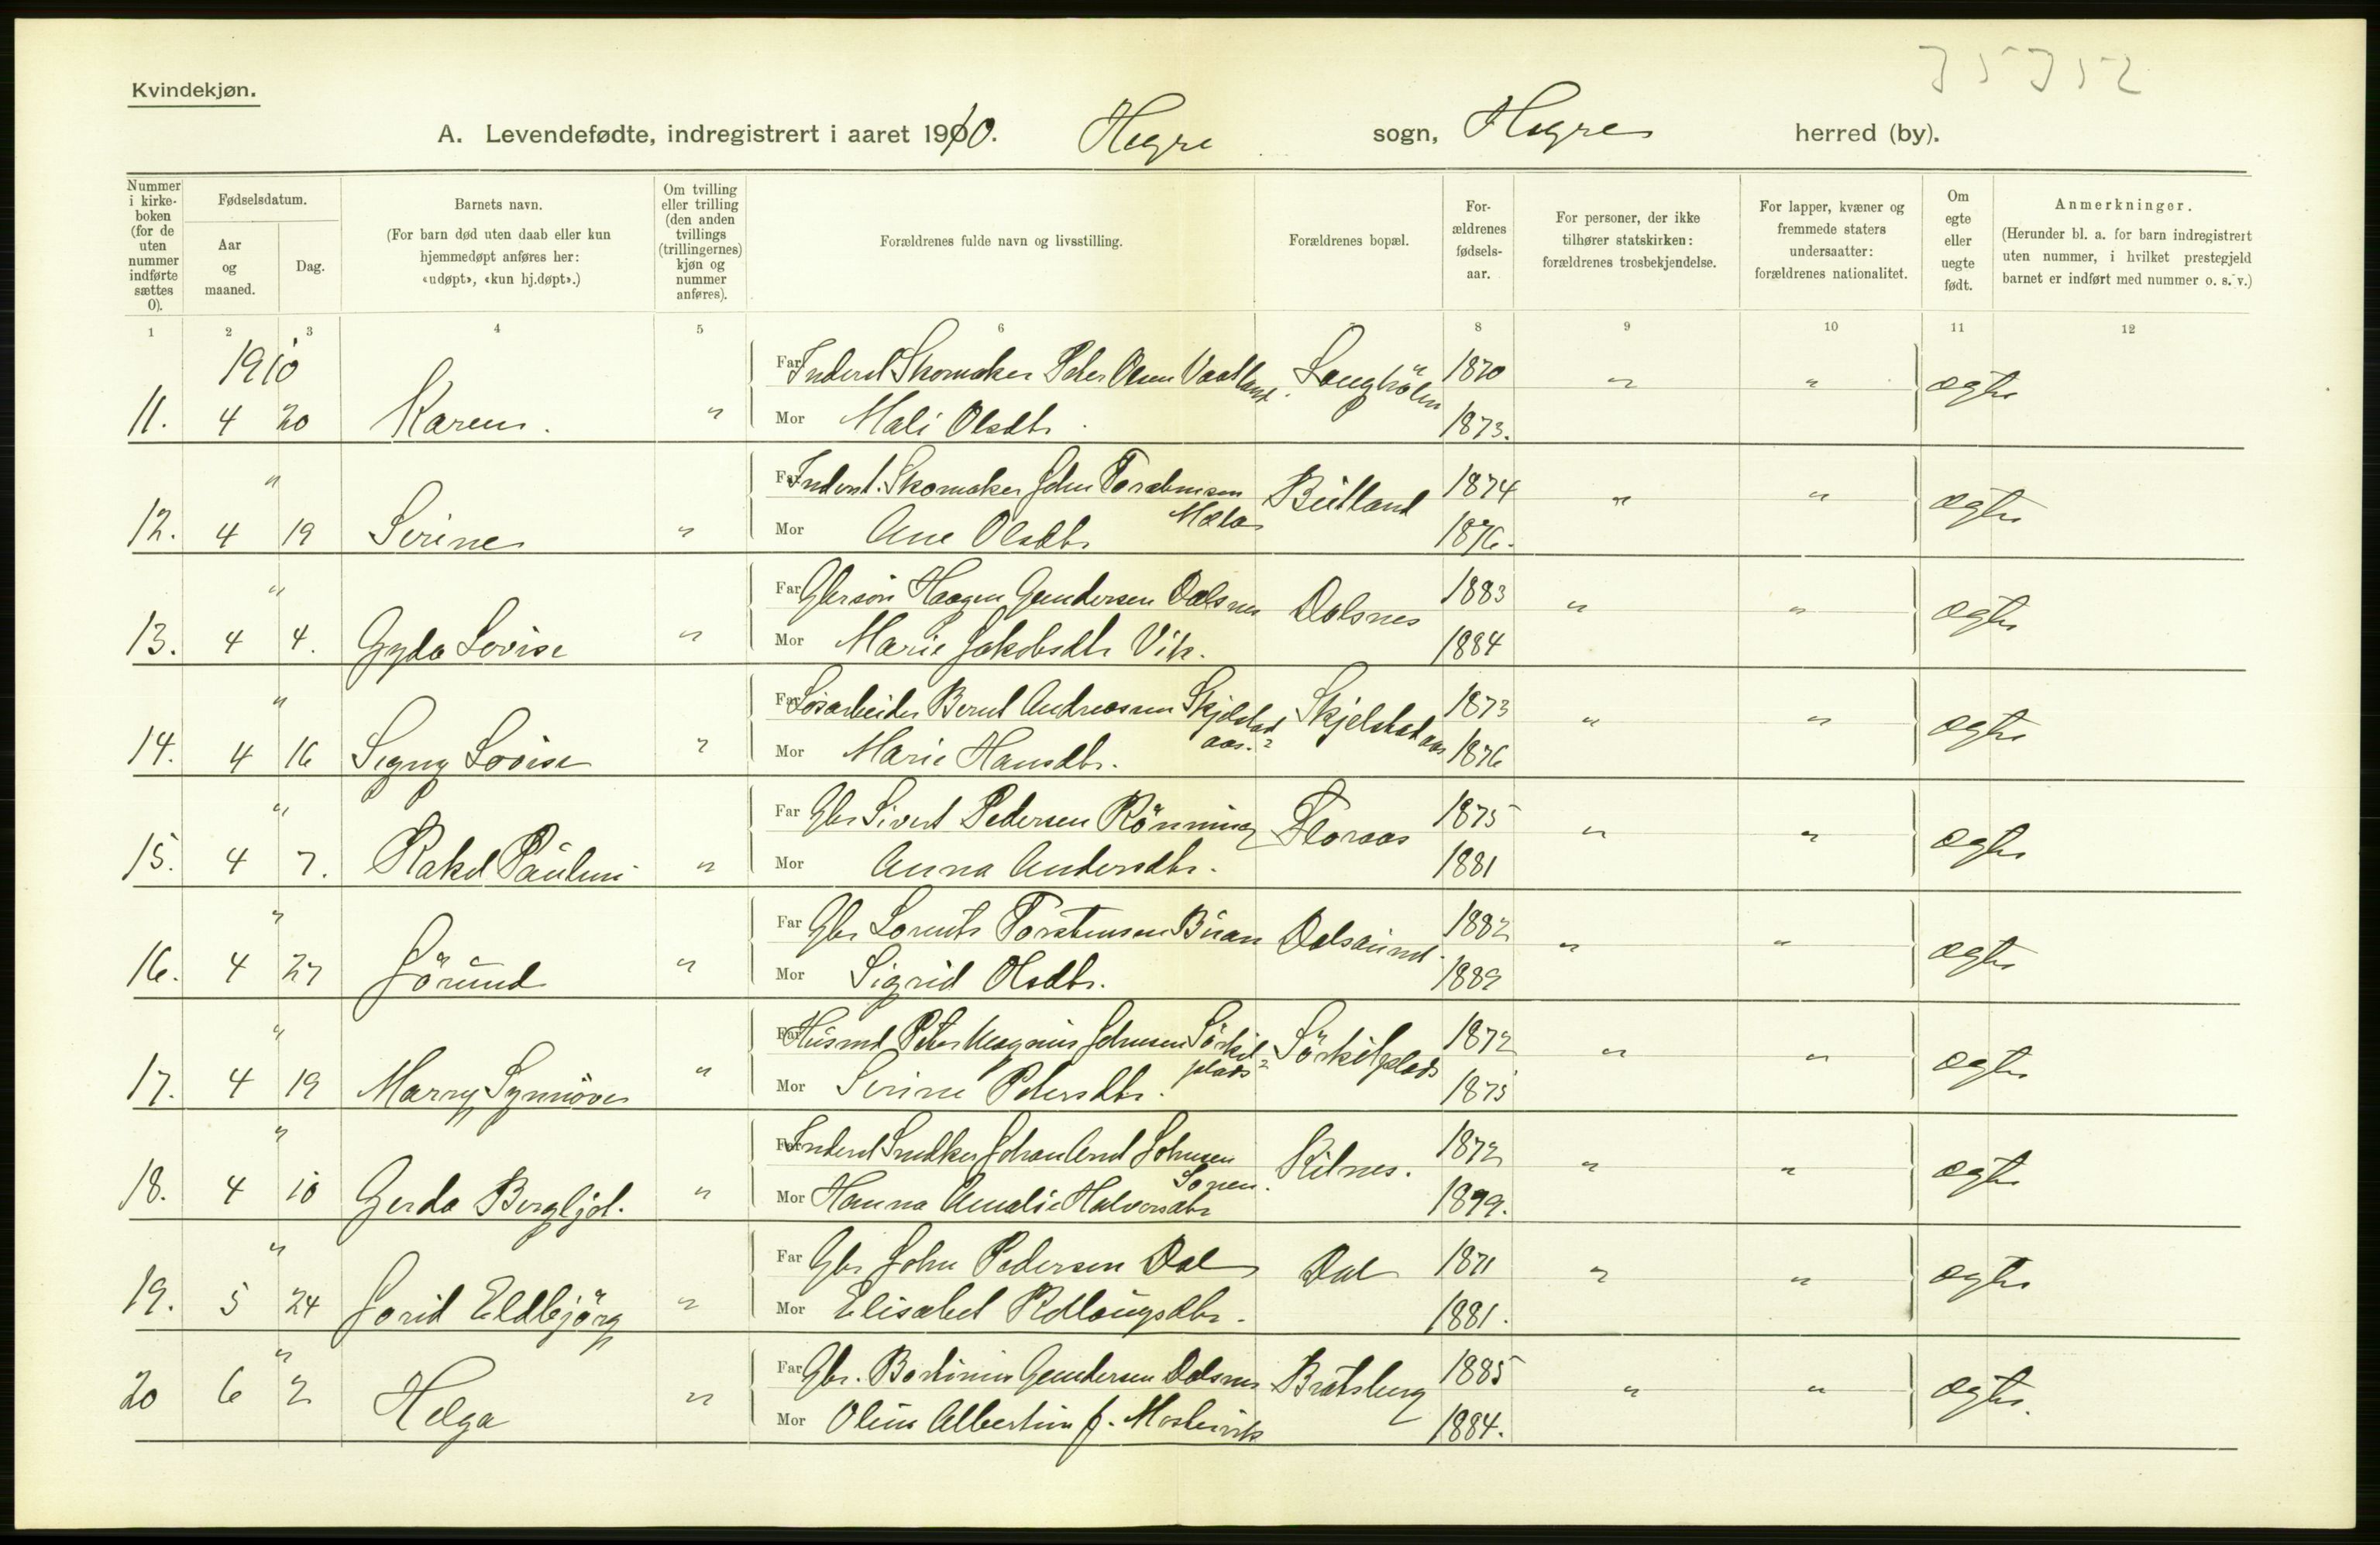 35352
Kvindekjøn.
A. Levendefødte, indregistrert i aaret 1910. Hegre sogn, Hegre herred (by).
Nummer i kirkeboken (for de uten nummer indførte sættes 0).
Fødselsdatum.
Aar og maaned.
Dag.
Barnets navn.
(For barn død uten daab eller kun hjemmedøpt anføres her: «udøpt», «kun hj.døpt».)
Om tvilling eller trilling (den anden tvillings (trillingernes) kjøn og nummer anføres).
Forældrenes fulde navn og livsstilling.
Forældrenes bopæl.
Forældrenes fødselsaar.
For personer, der ikke tilhører statskirken: forældrenes trosbekjendelse.
For lapper, kvæner og fremmede staters undersaatter: forældrenes nationalitet.
Om egte eller uegte født.
Anmerkninger.
(Herunder bl. a. for barn indregistrert uten nummer, i hvilket prestegjeld barnet er indført med nummer o. s. v.)
1 2 3 4 5 6 8 9 10 11 12
1910
Far Inderst Skomaker Peter Olsen 1870
11. 4 20 Karen. " Mor Mali Olsdtr. 1873. " " ægte
" Far Inderst. Skomaker John Torstensen Mæla Butland 1874
12. 4 19 Serine " Mor Ane Olsdtr 1876. " " ægte
" Far Gbrsøn Haagen Gundersen Dalsnes Dalsnes 1883
13. 4 4. Gyda Lovise " Mor Marie Jakobsdtr Vik. 1884 " " ægte
" Far Løsarbeider Bernt Andreassen Skjelstadaas. Skjelstadaas 1873
14. 4 16 Signy Lovise " Mor Marie Hansdtr. 1876 " " ægte
" Far Gbr Sivert Pedersen Rönning Floraas 1875
15. 4 7. Rakel Pauline " Mor Anna Andersdtr. 1881 " " ægte
" Far Gbr Lorents Torstensen Buan 1882
16. 4 27 Jörund " Mor Sigrid Olsdtr. 1889 " " ægte
" Far Husmd Peter Magnus Johnsen Sörkilplads Sörkilplads 1872
17. 4 19 Marry Synnöve " Mor Serine Petersdtr. 1875 " " ægte
" Far Inderst Snedker Johan Arnt Johnsen Sonen. Kilnes. 1872
18. 4 10 Gerda Bergljot. " Mor Hanna Amalie Halvorsdtr 1879. " " ægte
" Far Gbr John Pedersen Dal Dal 1871
19. 5 24 Jorid Eldbjörg " Mor Elisabet Rollaugsdtr. 1881. " " ægte
" Far Gbr. Bertinius Gundersen Dalsnes Bratsberg 1885
20 6 2 Helga " Mor Oline Albertine f. 1884. " " ægte.